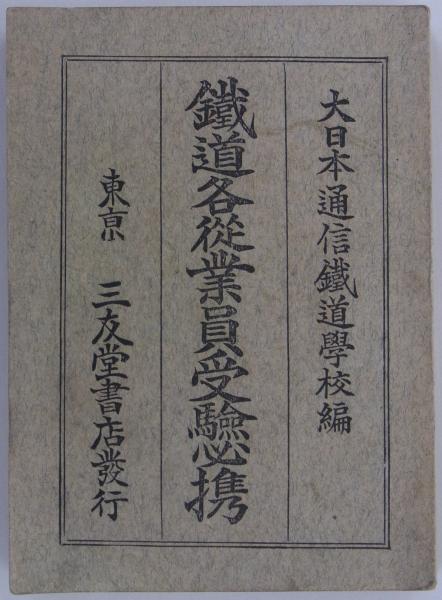 大日本通信鐵道學校編
鐵道各從業員受驗必携
東京 三友堂書店發行